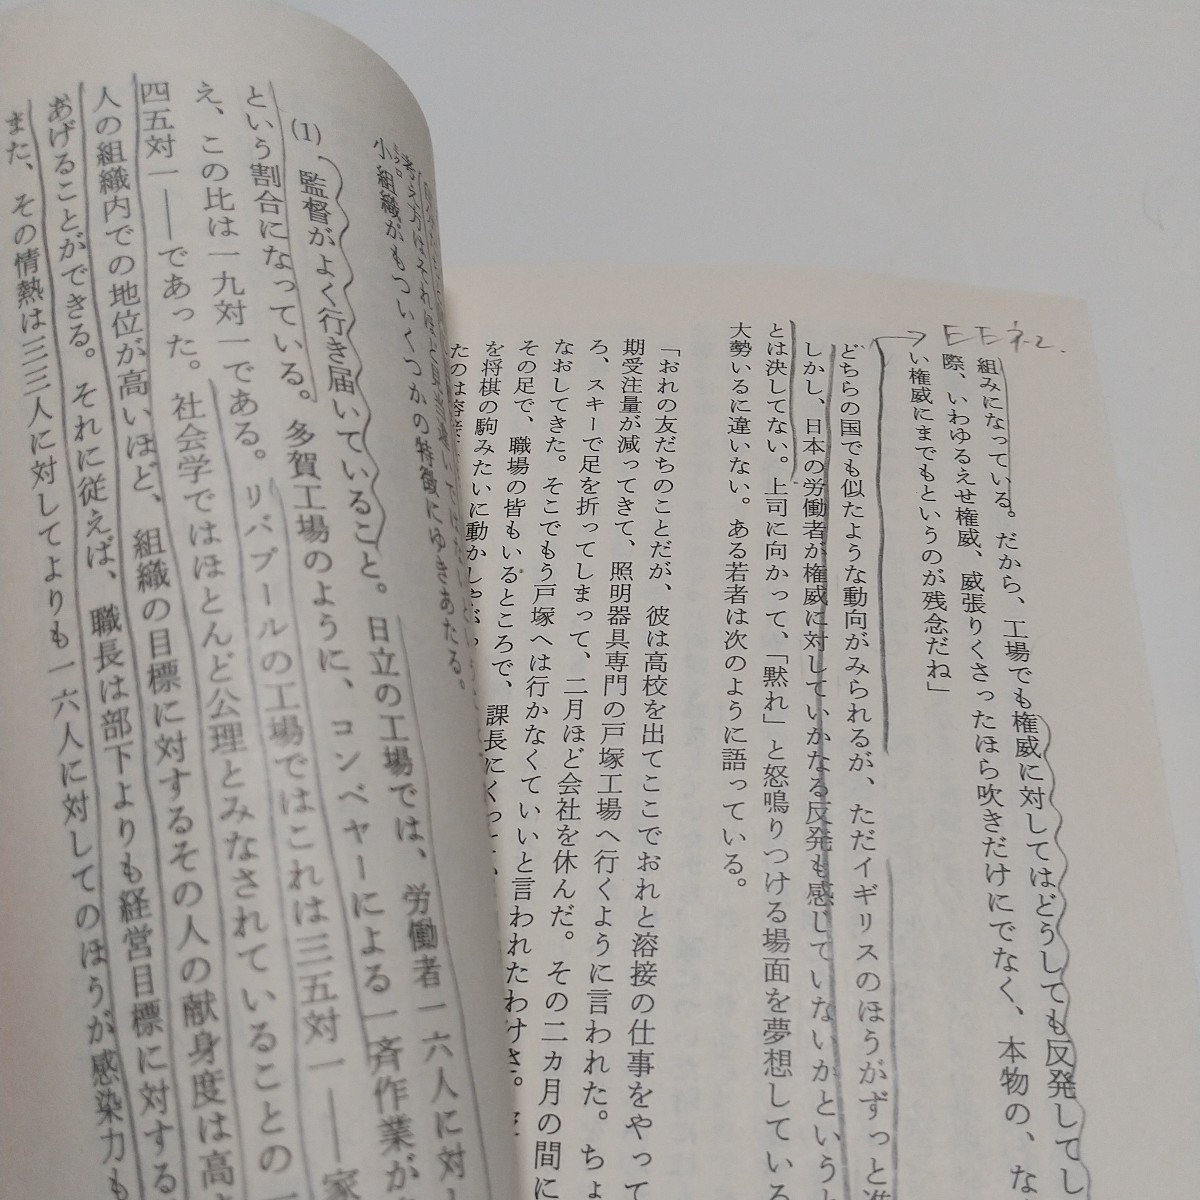 EEネ
組みになっている。だから、工場でも権威に対してはどうしても反発してし
際、いわゆるえせ権威、威張りくさったほら吹きだけにでなく、本物の、な
い権威にまでもというのが残念だね」
どちらの国でも似たような動向がみられるが、ただイギリスのほうがずっと進
しかし、日本の労働者が権威に対していかなる反発も感じていないかというと
とは決してない。上司に向かって、「黙れ」と怒鳴りつける場面を夢想している
大勢いるに違いない。ある若者は次のように語っている。
「おれの友だちのことだが、彼は高校を出てここでおれと溶接の仕事をやって
期受注量が減ってきて、照明器具専門の戸塚工場へ行くように言われた。ちょ
ろ、スキーで足を折ってしまって、二月ほど会社を休んだ。その二カ月の間に
なおしてきた。そこでもう戸塚へは行かなくていいと言われたわけさ。
その足で、職場の皆もいるところで、課長にくって
を将棋の駒みたいに動かしやがっ
たのは溶接
考え方はそれほど見当違いではない
小組織がもついくつかの特徴にゆきあたる。
ミクロ
(1) 監督がよく行き届いていること。日立の工場では、労働者一六人に対し
という割合になっている。多賀工場のように、コンベヤーによる一斉作業が
え、この比は一九対一である。リバプールの工場ではこれは三五対一――家
四五対一――であった。社会学ではほとんど公理とみなされていることの一
人の組織内での地位が高いほど、組織の目標に対するその人の献身度は高
あげることができる。それに従えば、職長は部下よりも経営目標に対する
また、その情熱は三三人に対してよりも一六人に対してのほうが感染力も